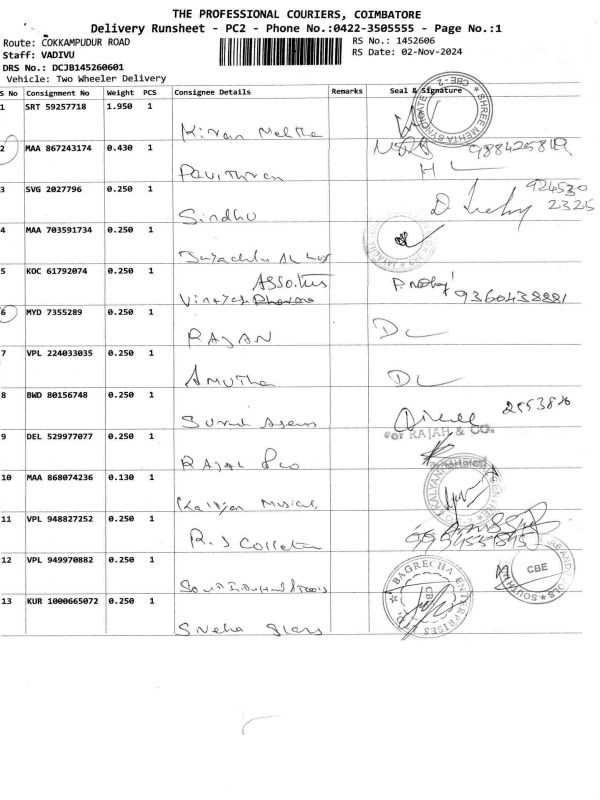 THE PROFESSIONAL COURIERS, COIMBATORE
Delivery Runsheet - PC2 - Phone No.:0422-3505555 - Page No.:1
Route: COKKAMPUDUR ROAD
RS No.: 1452606
Staff: VADIVU
RS Date: 02-Nov-2024
DRS No.: DCJB145260601
Vehicle: Two Wheeler Delivery
S No Consignment No Weight PCS Consignee Details Remarks Seal & Signature
1 SRT 59257718 1.950 1
Kiran Mehtha
SHREE MEHTA CBE-2
2 MAA 867243174 0.430 1
Pavithran
3 SVG 2027796 0.250 1
Sindhu
924530
2325
4 MAA 703591734 0.250 1
5 KOC 61792074 0.250 1
Vinayak Pharma
9360438881
6 MYD 7355289 0.250 1
RAJAN
7 VPL 224033035 0.250 1
Amutha
8 BWD 80156748 0.250 1
9 DEL 529977077 0.250 1
RAJAH & CO
10 MAA 868074236 0.130 1
Kalyan Musical
11 VPL 948827252 0.250 1
R.S Collection
12 VPL 949970882 0.250 1
CBE
SOUTH
13 KUR 1000665072 0.250 1
Sneha Glass
BAGRECHA ENTERPRISES